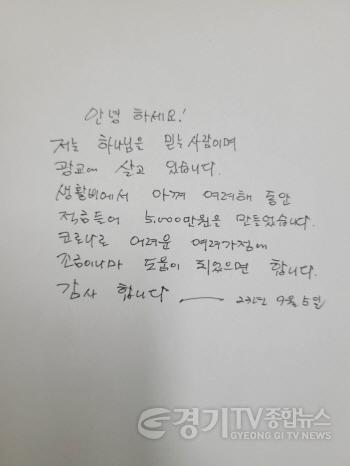 안녕 하세요!
저는 하나님은 믿는 사람이며
광교에 살고 있습니다.
생활비에서 아껴 여러해 동안
적금들어 5,000만원을 만들었습니다.
코로나로 어려운 여러가정에
조금이나마 도움이 되었으면 합니다.
감사 합니다 — 23년 9월 5일
경기TV종합뉴스
GYEONG GI TV NEWS